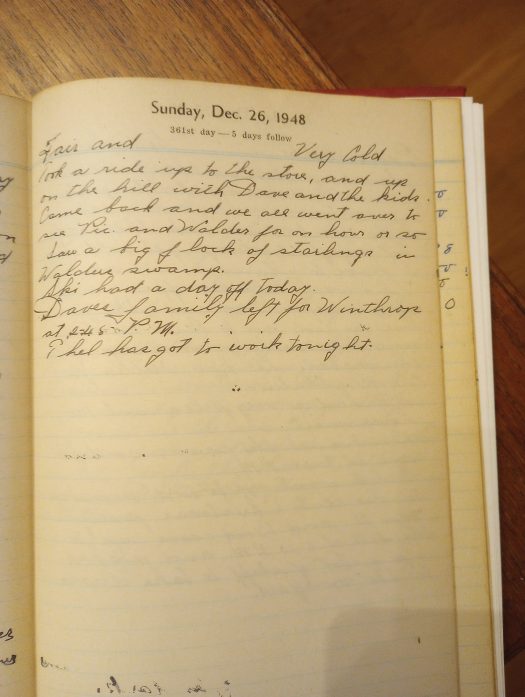 Sunday, Dec. 26, 1948
361st day—5 days follow
Fair and Very Cold
Took a ride up to the store, and up
on the hill with Dave and the kids.
Came back and we all went over to
see Pic. and Walder for on hour or so
Saw a big flock of starlings in
Walders swamp.
Ski had a day off today.
Daves family left for Winthrop
at P.M.
Thel has got to work tonight.